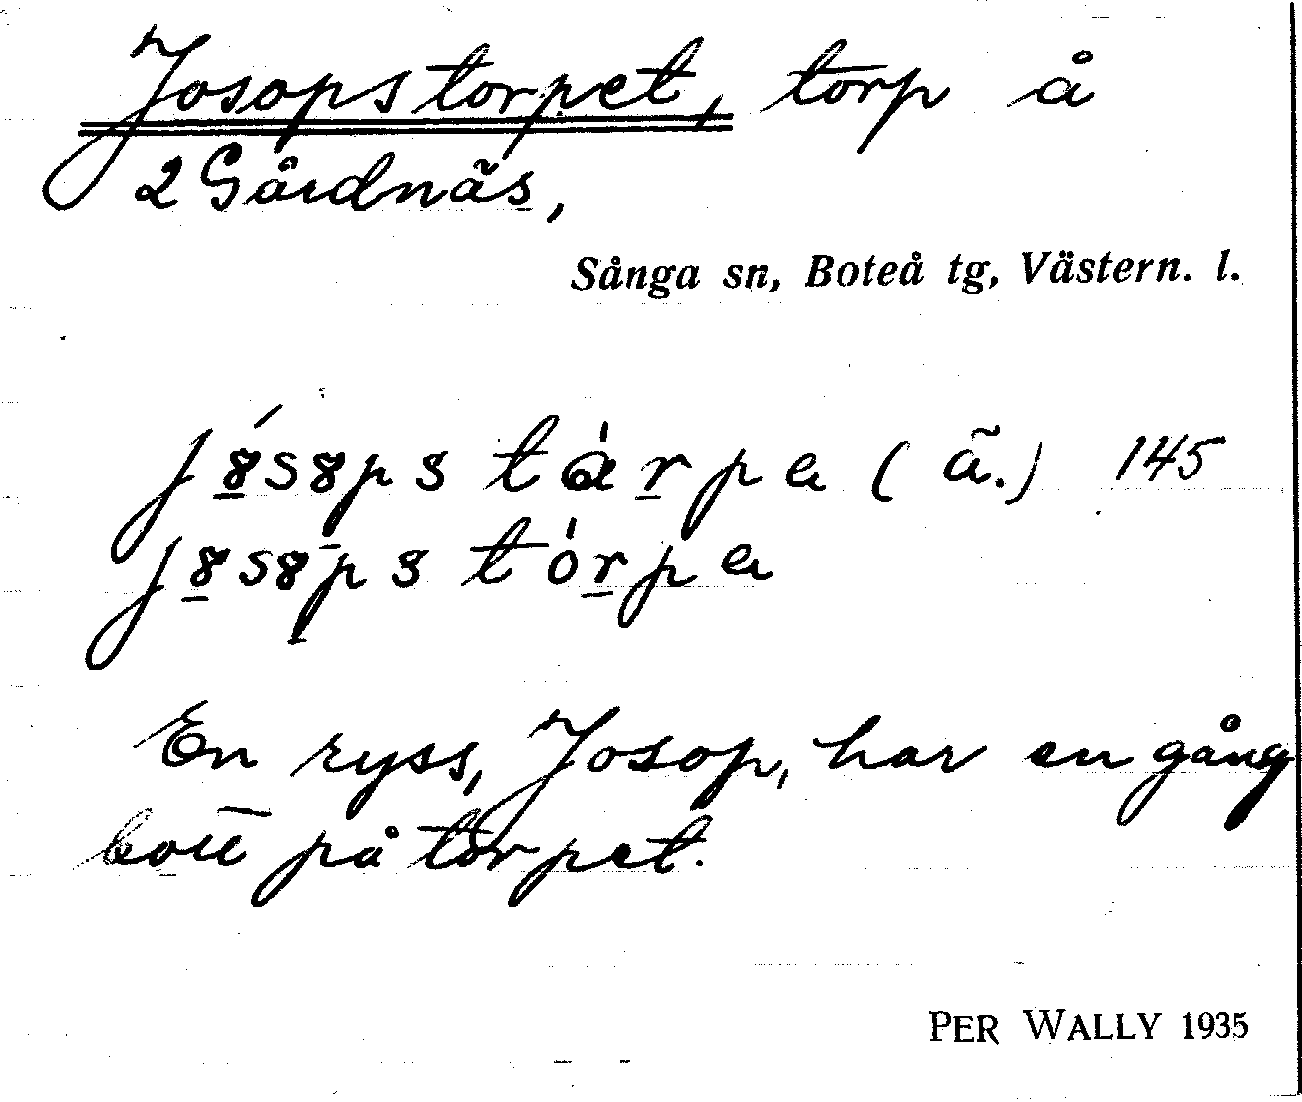 Josopstorpet, torp å
2 Gårdnäs,
Sånga sn, Boteå tg, Västern. l.
(ä.) 145
En ryss, Josop, har en gång
bott på torpet.
PER WALLY 1935